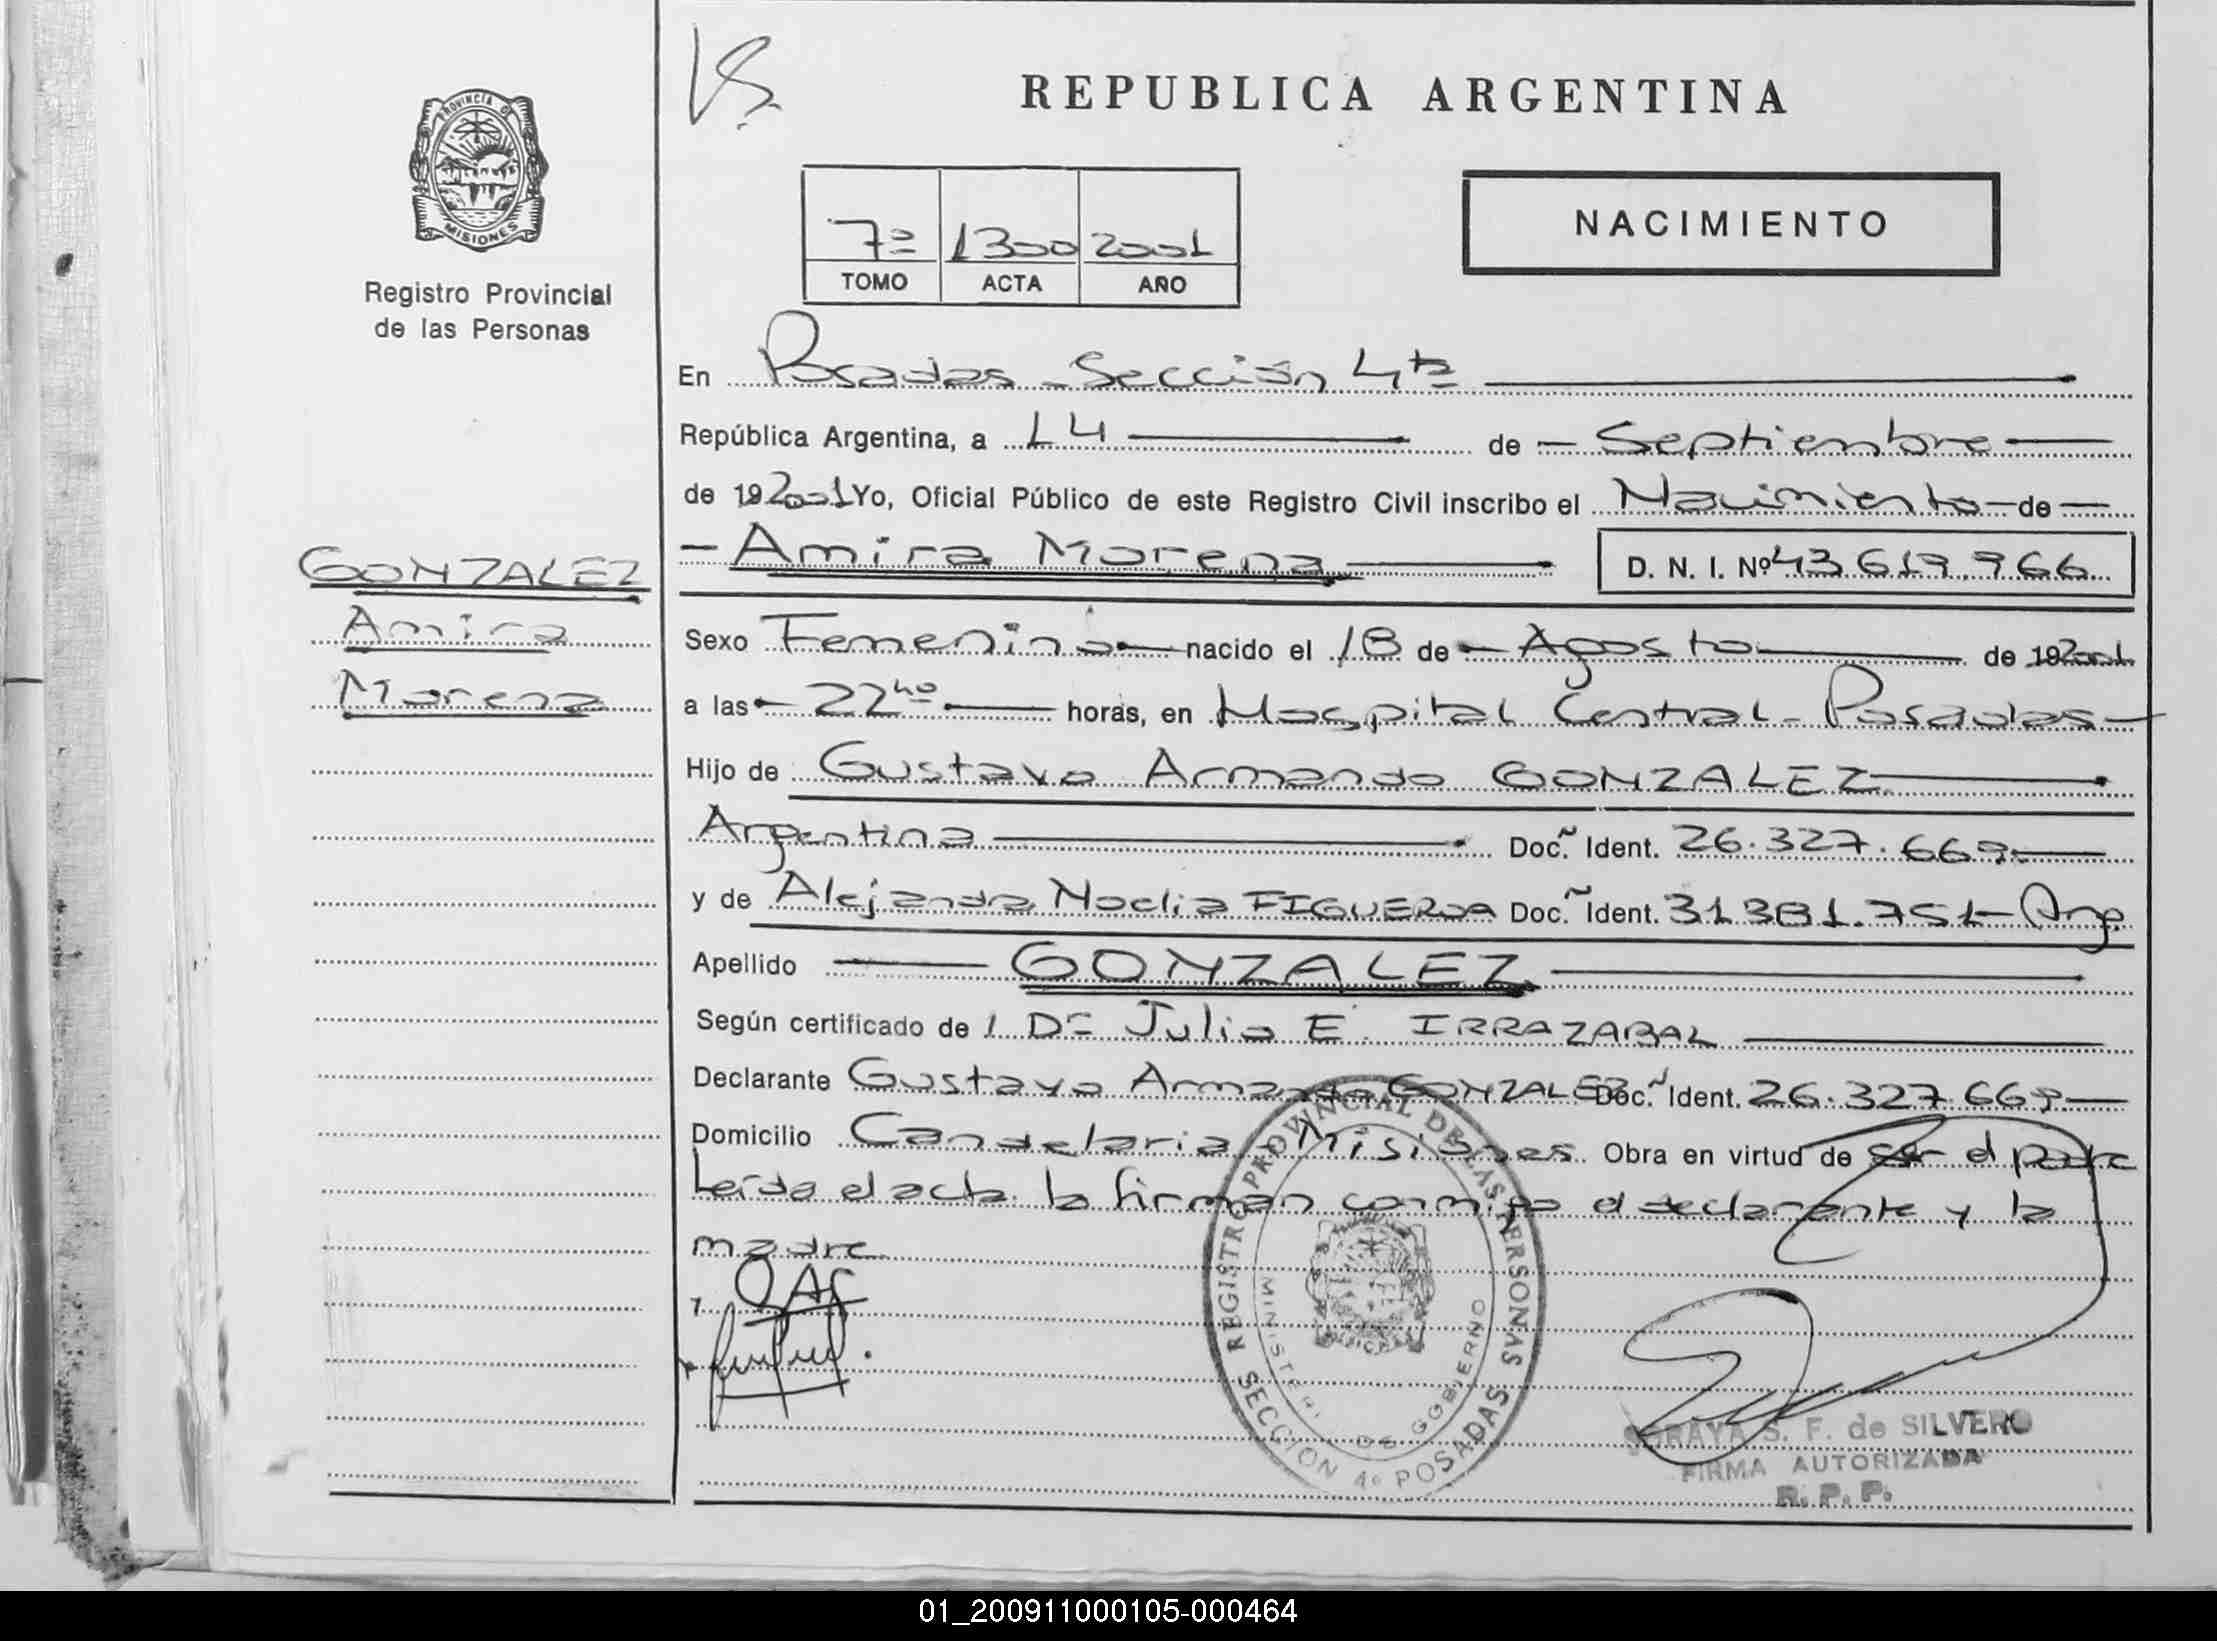 REPUBLICA ARGENTINA
PROVINCIA DE
MISIONES
Registro Provincial
de las Personas
7º 1300 2001
TOMO ACTA AÑO
NACIMIENTO
En Posadas - Sección 4ta
República Argentina, a 14 de Septiembre
de 192001 Yo, Oficial Público de este Registro Civil inscribo el Nacimiento de
Amira Morena D. N. I. Nº 43.619.966
GONZALEZ
Amira
Morena
Sexo Femenino nacido el 18 de Agosto de 192001
a las 22ho horas, en Hospital Central - Posadas
Hijo de Gustavo Armando GONZALEZ
Argentina Doc. Ident. 26.327.669
y de Alejandra Noelia FIGUEROA Doc. Ident. 31381.751 - Arg.
Apellido GONZALEZ
Según certificado de 1 Dr Julio E. IRRAZABAL
Declarante Gustavo Armando GONZALEZ Doc. Ident. 26.327.669
Domicilio Candelaria - Misiones Obra en virtud de ser el padre
Leída el acta la firman conmigo el declarante y la
madre
REGISTRO PROVINCIAL DE LAS PERSONAS
MINISTERIO DE GOBIERNO
SECCION 4º POSADAS
SORAYA S. F. de SILVERO
FIRMA AUTORIZADA
R. P. P.
01_200911000105-000464